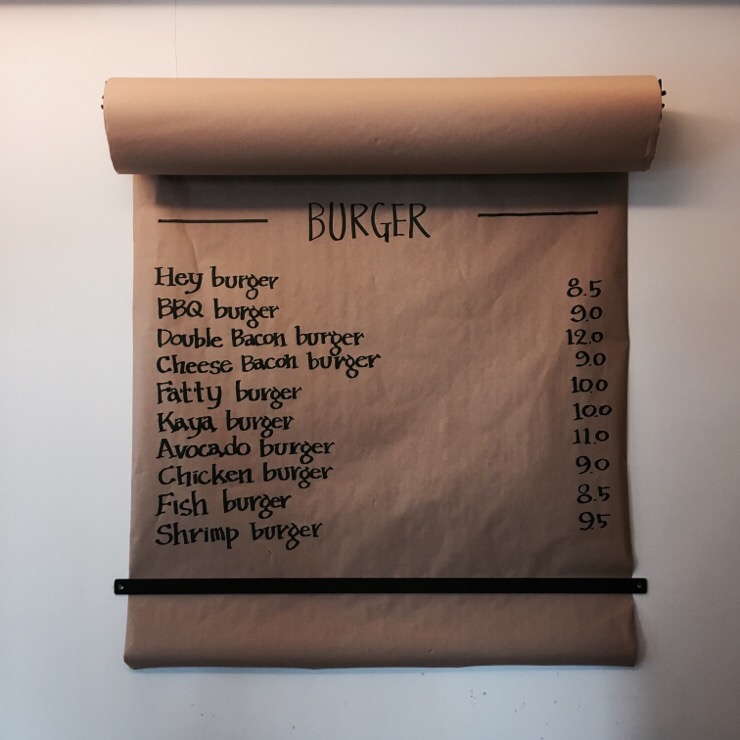 BURGER
Hey burger 8.5
BBQ burger 9.0
Double Bacon burger 12.0
Cheese Bacon burger 9.0
Fatty burger 10.0
Kaya burger 10.0
Avocado burger 11.0
Chicken burger 9.0
Fish burger 8.5
Shrimp burger 9.5